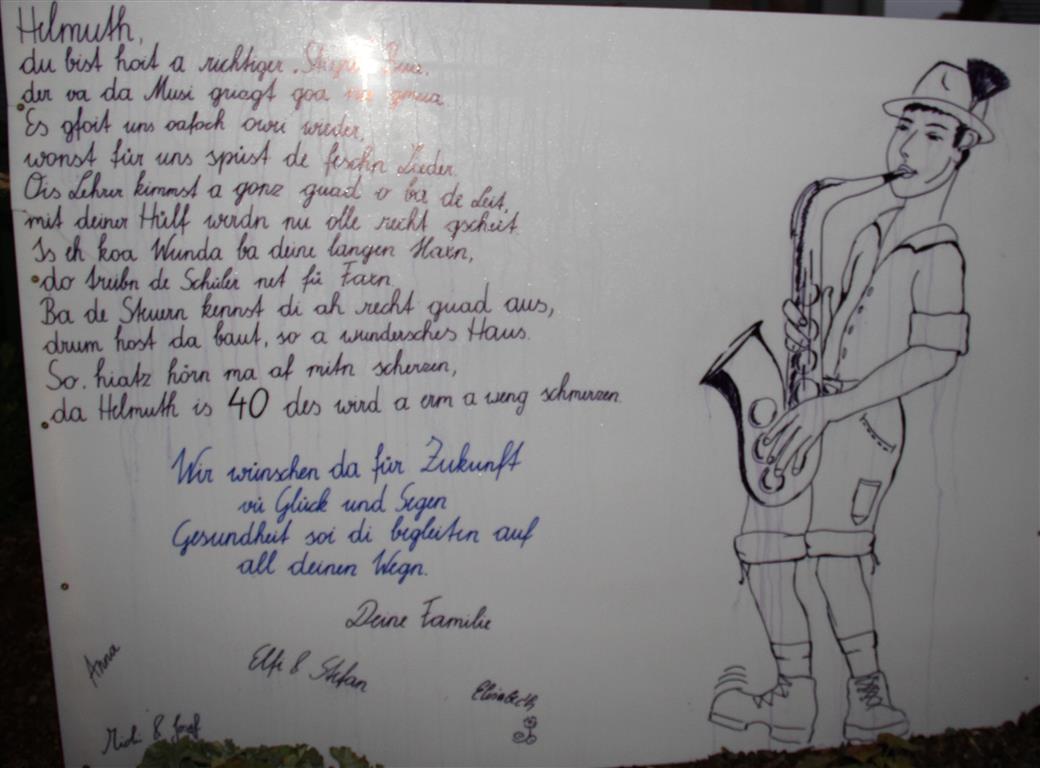 Helmuth,
du bist hoit a richtiger
der va da Musi gnagt goa
Es gfoit uns oafoch owi wieder,
wonst für uns spüst de feschn Lieder.
Ois Lehrer kimmst a gonz guad o ba de Leit,
mit deiner Hülf werdn nu olle recht gscheit.
Is eh koa Wunda ba deine langen Haxn,
do treibn de Schüler net fü Faxn.
Ba de Steuern kennst di ah recht guad aus,
drum host da baut, so a wundersches Haus.
So, hiatz hörn ma af mitn scherzen,
da Helmuth is 40 des wird a erm a weng schmerzen.
Wir wünschen da für Zukunft
vü Glück und Segen
Gesundheit soi di begleiten auf
all deinen Wegn.
Deine Familie
Anna
Elfi & Stefan
Elisabeth
Michi & Josef